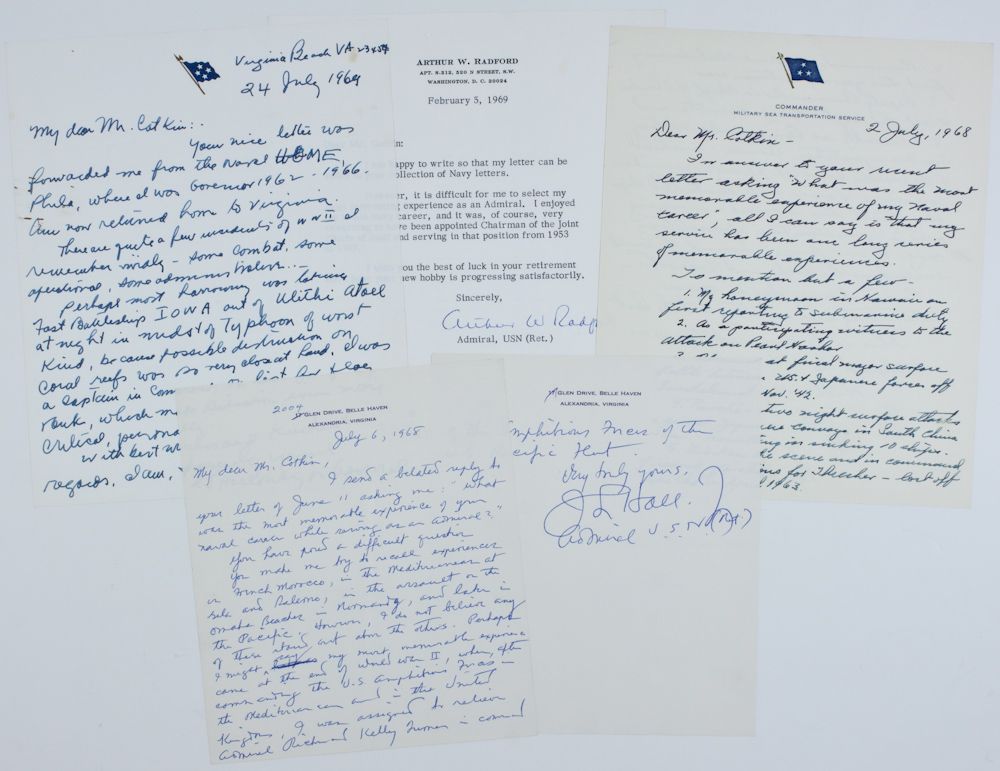 Virginia Beach VA 23454
24 July 1969
My dear Mr. Cotkin:.
Your nice letter was
forwarded me from the Naval HOME,
Phila, where I was Governor 1962 - 1966.
Am now retired home to Virginia.
There are quite a few incidents of WW II I
remember vividly - some combat, some
operational, some administrative...
Perhaps most harrowing was taking
Fast Battleship IOWA out of Ulithi Atoll
at night in midst of Typhoon of worst
Kind, because possible destruction on
Coral reefs was so very close at hand. I was
a Captain in Com
rank, which m
Critical, persona
With best w
regards, I am,
ARTHUR W. RADFORD
APT. S-212, 520 N STREET, S.W.
WASHINGTON, D. C. 20024
February 5, 1969
n:
appy to write so that my letter can be
ollection of Navy letters.
er, it is difficult for me to select my
g experience as an Admiral. I enjoyed
career, and it was, of course, very
ve been appointed Chairman of the Joint
nd serving in that position from 1953
ou the best of luck in your retirement
new hobby is progressing satisfactorily.
Sincerely,
Arthur W Radf
Admiral, USN (Ret.)
COMMANDER
MILITARY SEA TRANSPORTATION SERVICE
2 July, 1968
Dear Mr. Cotkin -
In answer to your recent
letter asking "What was the most
memorable experience of my Naval
career", all I can say is that my
service has been one long series
of memorable experiences.
To mention but a few -
1. My honeymoon in Hawaii on
first reporting to submarine duty
2. As a participating witness to the
Attack on Pearl Harbor
at first major surface
U.S. & Japanese forces off
Nov. '42.
night surface attacks
convoys in South China
in sinking 10 ships.
scene and in command
for Thresher - lost off
1963.
2004
17 GLEN DRIVE, BELLE HAVEN
ALEXANDRIA, VIRGINIA
July 6, 1968
My dear Mr. Cotkin,
I send a belated reply to
your letter of June 11 asking me: "What
was the most memorable experience of your
naval career while serving as an Admiral?"
You have posed a difficult question
You make me try to recall experiences
in French Morocco, in the Mediterranean at
Gela and Salerno, in the assault on the
Omaha Beaches in Normandy, and later in
the Pacific. However, I do not believe any
of these stand out above the others. Perhaps
I might say my most memorable experience
came at the end of World War II, when, after
commanding the U.S. Amphibious Forces in
the Mediterranean and in the United
Kingdom, I was assigned to relieve
Admiral Richmond Kelly Turner in command
17 GLEN DRIVE, BELLE HAVEN
ALEXANDRIA, VIRGINIA
mphibious Forces of the
cific Fleet.
Very truly yours,
J L Hall, Jr
Admiral U.S.N. (Ret.)